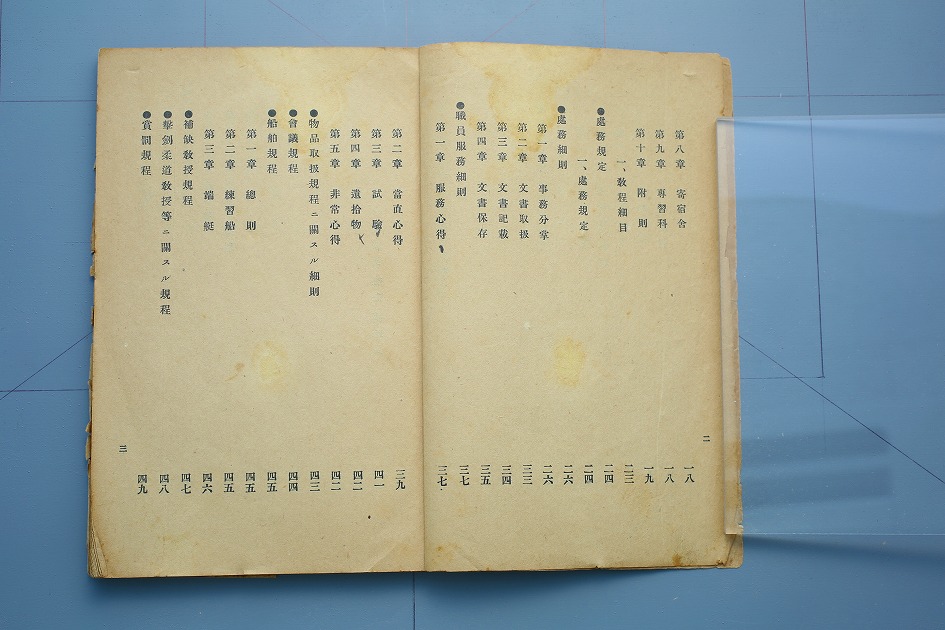 第八章 寄宿舍 一八
第九章 專習科 一八
第十章 附則 一九
一、敎程細目 二三
●處務規定 二四
一、處務規定 二四
●處務細則 二六
第一章 事務分掌 二六
第二章 文書取扱 三三
第三章 文書記載 三四
第四章 文書保存 三五
●職員服務細則 三七
第一章 服務心得 三七
二
第二章 當直心得 三九
第三章 試驗 四一
第四章 遺拾物 四二
第五章 非常心得 四二
●物品取扱規程ニ關スル細則 四三
●會議規程 四四
●船舶規程 四五
第一章 總則 四五
第二章 練習船 四五
第三章 端艇 四六
●補缺敎授規程 四七
●擊劍柔道敎授等ニ關スル規程 四八
●賞罰規程 四九
三